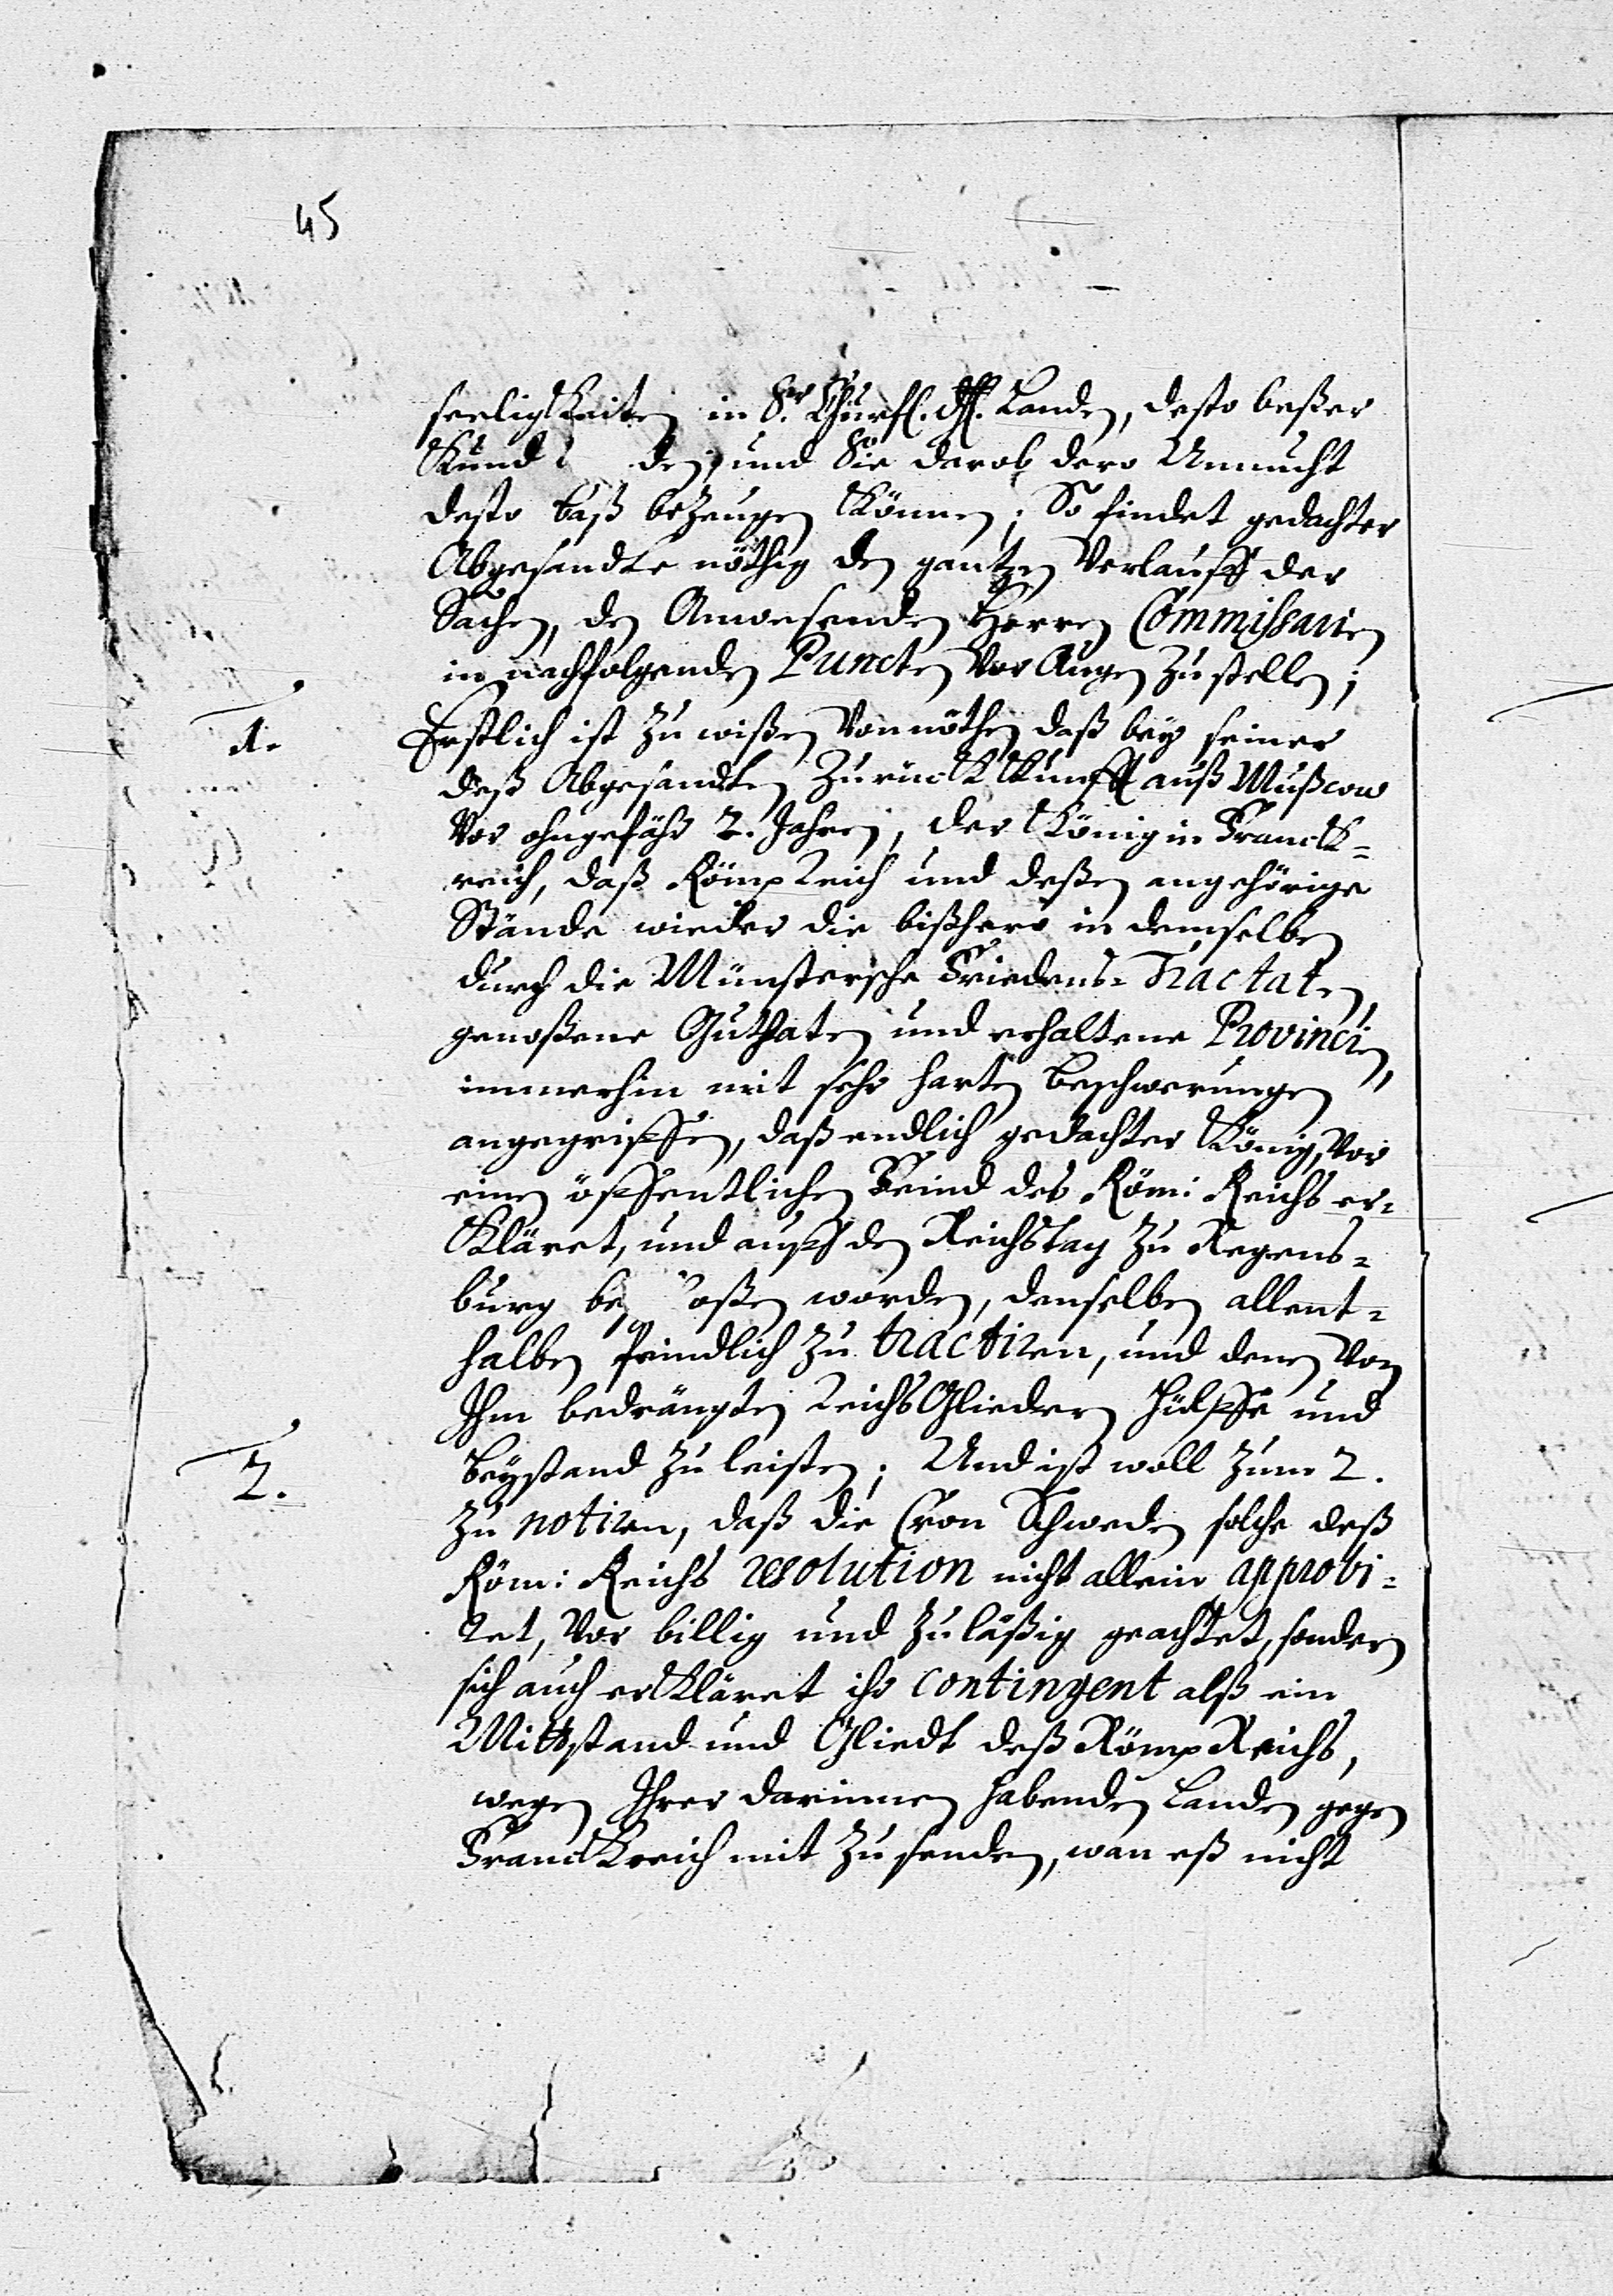 45
seeligkeiten in Sr. Churfl. Dhl. Landen, desto beßer
Kund den, und Sie darob dero Unmuht
desto baß bezeugen können; So findet gedachter
Abgesandte nöthig den gantzen Verlauff der
Sachen, den Anwesenden Herren Commissarien
in nachfolgenden Puncten Vor Augen zu stellen;
1.
Erstlich ist zu wißen Vonnöthen daß bey seiner
deß Abgesandten Zurückkunfft auß Mußcow
Vor ohngefähr 2. Jahren, der König in Franck=
reich, daß Römp Reich und deßen angehörige
Stände wieder die bißhero in demselben
durch die Münstersche Friedens-Tractaten,
genoßene Guthaten und erhaltene Provincien,
immerhin mit sehr harten Beschwerungen
angegriffen, daß endlich gedachter König, Vor
einen öffentlichen Feind des Röm: Reichs er=
kläret, und auff den Reichstag zu Regens=
burg oßen worden, denselben allent=
halben feindlich zu tractiren, und denen Von
Ihm bedrängten Reichs Gliedern Hülffe und
2.
Beystand zu leisten; Und ist woll zum 2.
zu notiren, daß die Cron Schweden solche deß
Röm: Reichs resolution nicht allein approbi=
ret, Vor billig und zuläßig geachtet, sondern
sich auch erkläret ihr contingent alß ein
Mittstand und Gliedt deß Römp Reichs,
wegen Ihrer darinnen habenden Landen gegen
Franckreich mit zu senden, wan eß nicht